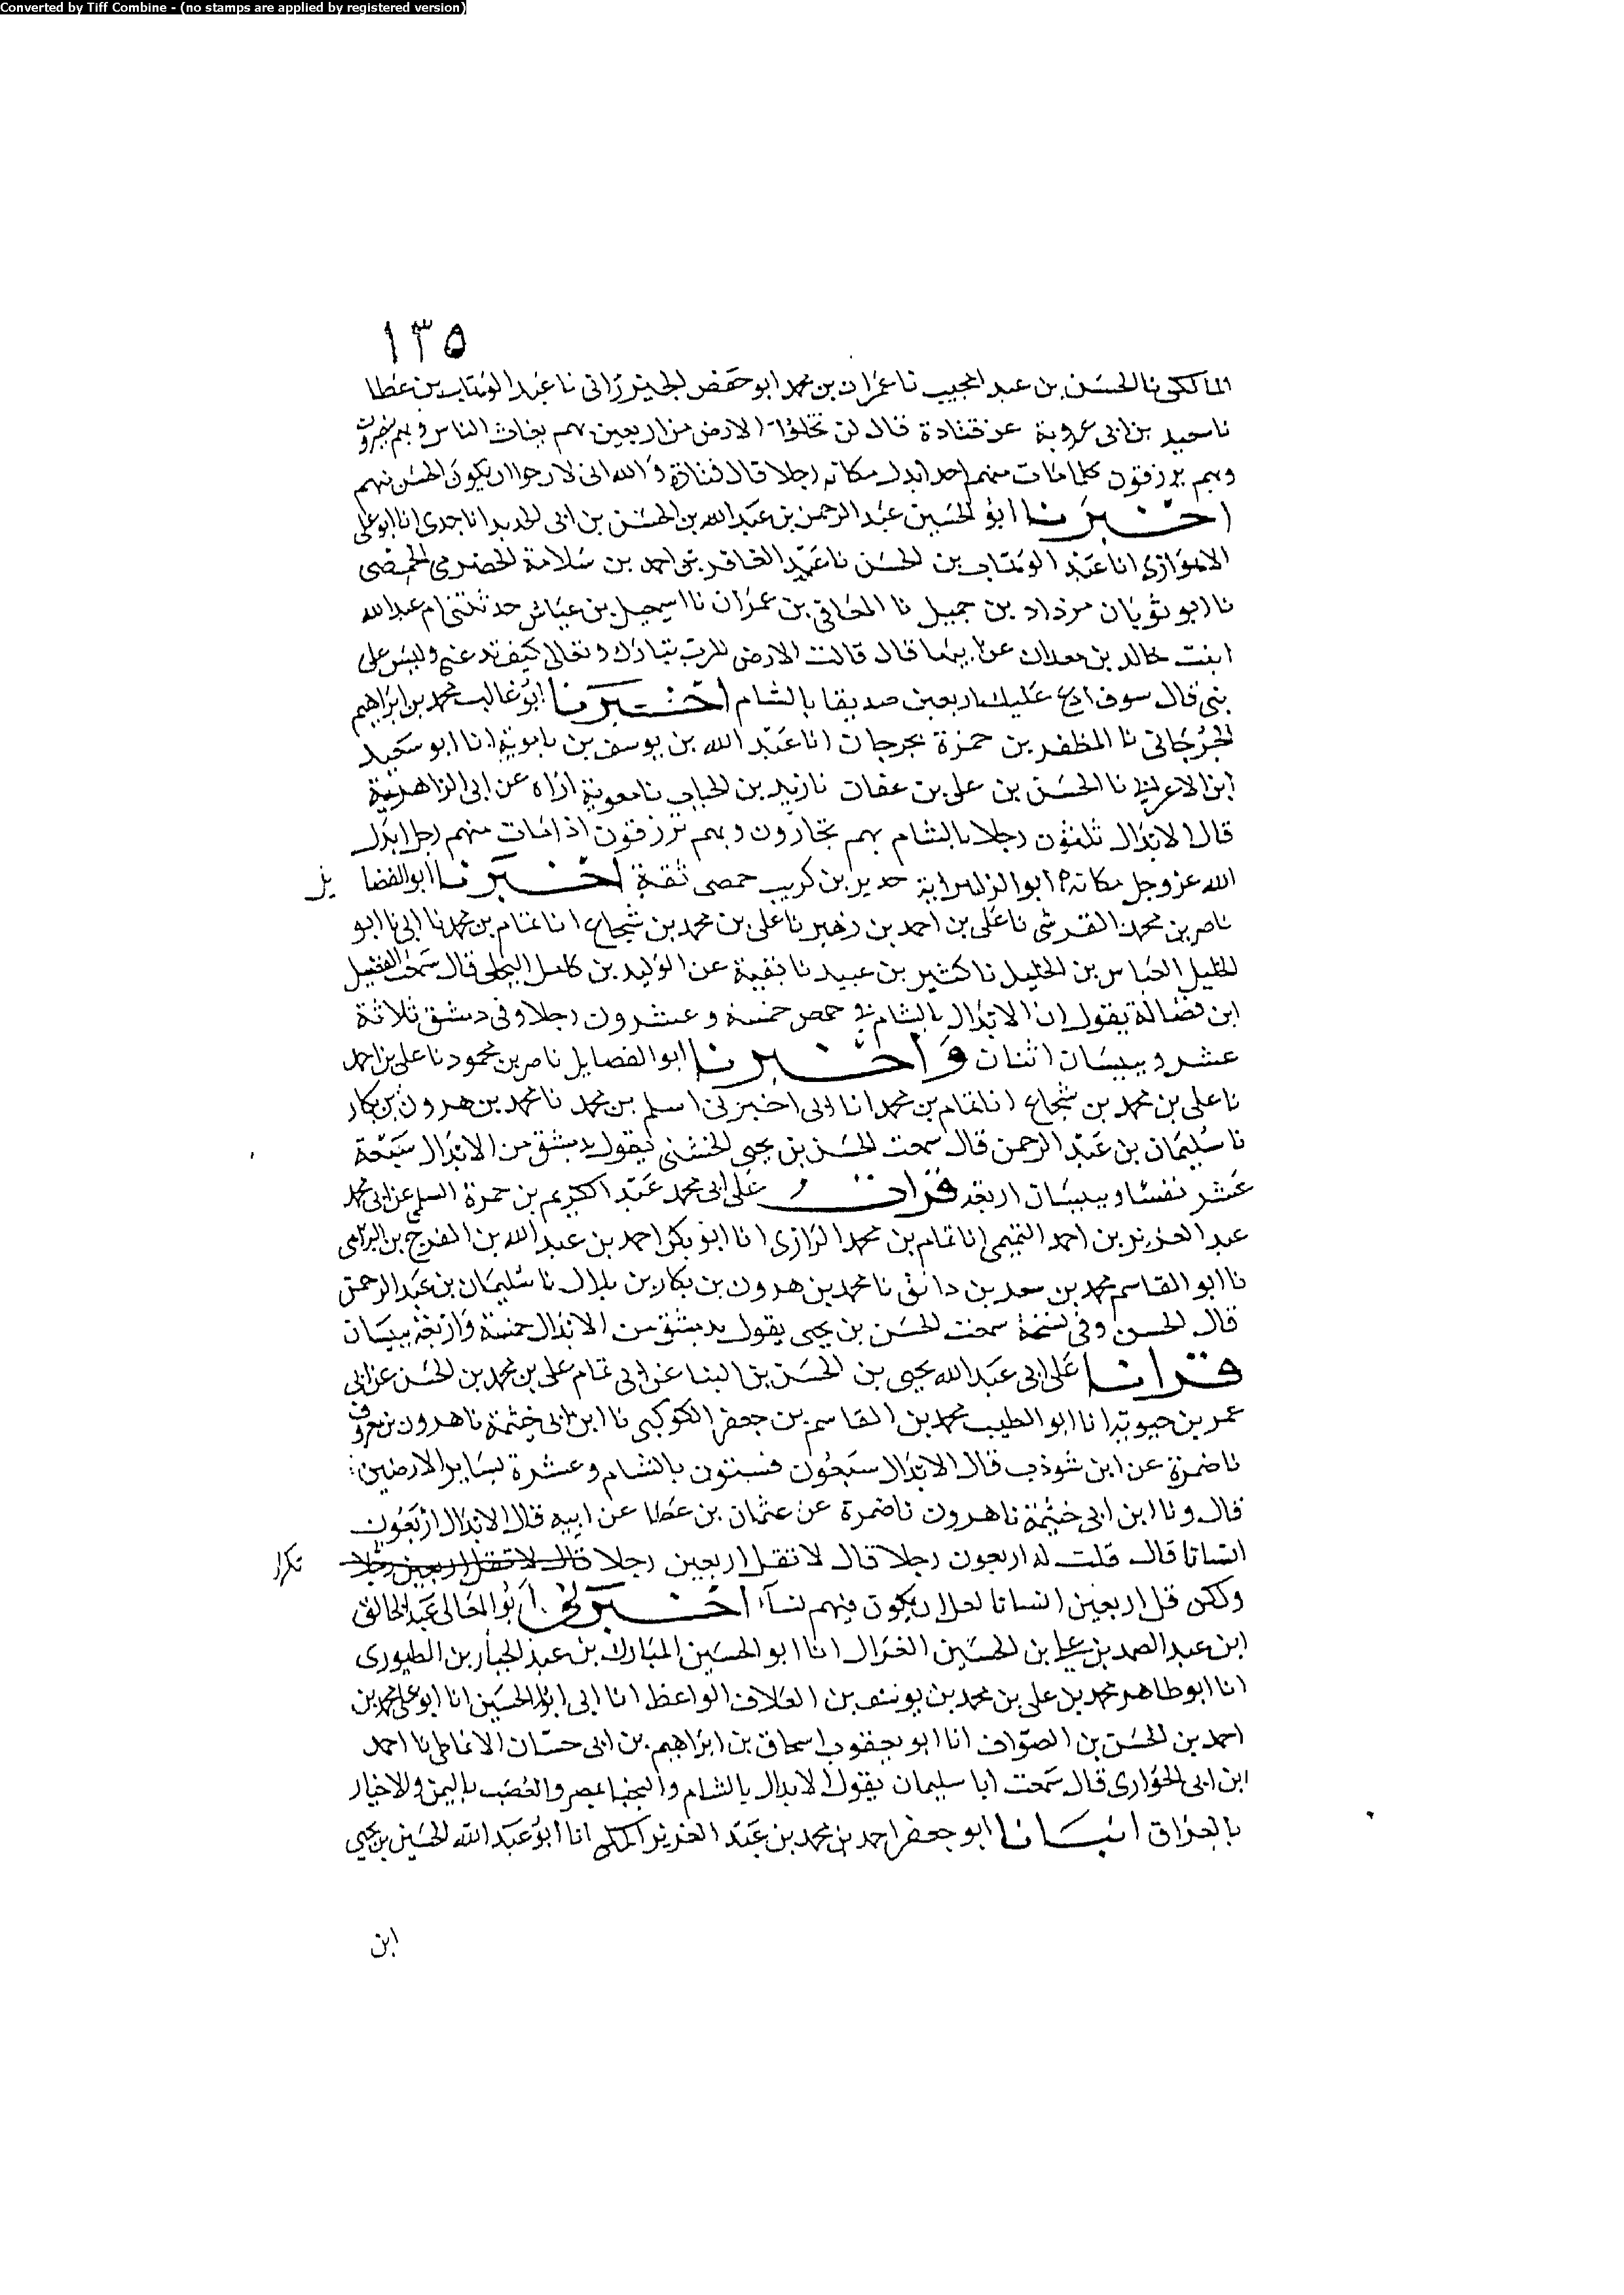 Converted by Tiff Combine - (no stamps are applied by registered version)
١٣٥
المالكى نا الحسن بن عبد المجيب نا عمران بن محمد ابو حفص الخيزرانى نا عبد الوهاب بن عطا
نا سعيد بن ابى عروبة عن قتادة قال لن تخلوا الارض من اربعين بهم يغاث الناس وبهم ينصرون
وبهم يرزقون كلما مات منهم احد ابدل مكانه رجلا قال قتادة والله انى لارجوا ان يكون الحسن منهم
اخبرنا ابو الحسين عبد الرحمن بن عبد الله بن الحسن بن ابى الحديد انا جدى انا ابو على
الاهوازى انا عبد الوهاب بن الحسن نا عبد الغافر بن احمد بن سلامة الحضرمى الحمصى
نا ابو ثوبان مرداد بن جميل نا المعافى بن عمران نا اسمعيل بن عياش حدثتنى ام عبد الله
ابنت خالد بن معدان عن ابيها قال قالت الارض للرب تبارك وتعالى كيف تدعنى وليس على
نبى قال سوف ادع عليك اربعين صديقا بالشام اخبرنا ابو غالب محمد بن ابراهيم
الجرجانى نا المظفر بن حمزة بجرجان انا عبد الله بن يوسف بن بابوية انا ابو سعيد
ابن الاعرابى نا الحسن بن على بن عفان نا زيد بن الحباب نا معوية اراه عن ابى الزاهرية
قال الابدال ثلثون رجلا بالشام بهم تجارون وبهم ترزقون اذا مات منهم رجل ابدل
الله عز وجل مكانه ابو الزاهرية حدير بن كريب حمصى ثقة اخبرنا ابو الفضايل
ناصر بن محمد القرشى نا على بن احمد بن زهير نا على بن محمد بن شجاع انا تمام بن محمد نا ابى نا ابو
الخليل العباس بن الخليل نا كثير بن عبيد نا بقية عن الوليد بن كامل البجلى قال سمعت الفضيل
ابن فضالة يقول ان الابدال بالشام فى حمص خمسة وعشرون رجلا وفى دمشق ثلاثة
عشر وببيسان اثنان واخبرنا ابو الفضايل ناصر بن محمود نا على بن احمد
نا على بن محمد بن شجاع انا تمام بن محمد انا ابى اخبرنى اسلم بن محمد نا محمد بن هرون بن بكار
نا سليمان بن عبد الرحمن قال سمعت الحسن بن يحيى الخشنى يقول بدمشق من الابدال سبعة
عشر نفسا وببيسان اربعة قرات على ابى محمد عبد الكريم بن حمزة السلمى عن ابى محمد
عبد العزيز بن احمد التميمى انا تمام بن محمد الرازى انا ابو بكر احمد بن عبد الله بن الفرج بن البرامى
نا ابو القاسم محمد بن سعد بن دانق نا محمد بن هرون بن بكار بن بلال نا سليمان بن عبد الرحمن
قال الحسن وفى نسخة سمعت الحسن بن يحيى يقول بدمشق من الابدال خمسة واربعة ببيسان
قرانا على ابى عبد الله يحيى بن الحسن بن البنا عن ابى تمام على بن محمد بن الحسن عن ابى
عمر بن حيويه انا ابو الطيب محمد بن القاسم بن جعفر الكوكبى نا ابن ابى خيثمة نا هرون بن معروف
نا ضمرة عن ابن شوذب قال الابدال سبعون فستون بالشام وعشرة بساير الارضين
قال ونا ابن ابى خيثمة نا هرون نا ضمرة عن عثمان بن عطا عن ابيه قال الابدال اربعون
انسانا قال قلت له اربعون رجلا قال لا تقل اربعين رجلا قال لا تقل اربعين رجلا
تكرار
ولكن قل اربعين انسانا لعل ان يكون فيهم نساء اخبرنى ابو المعالى عبد الخالق
ابن عبد الصمد بن على بن الحسين الغزال انا ابو الحسين المبارك بن عبد الجبار بن الطيورى
انا ابو طاهر محمد بن على بن محمد بن يوسف بن العلاف الواعظ انا ابى ابو الحسين انا ابو على محمد بن
احمد بن الحسن بن الصواف انا ابو يعقوب اسحاق بن ابراهيم بن ابى حسان الانماطى نا احمد
ابن ابى الحوارى قال سمعت ابا سليمان يقول الابدال بالشام والنجبا بمصر والعصب باليمن والاخيار
بالعراق انبانا ابو جعفر احمد بن محمد بن عبد العزيز المكى انا ابو عبد الله الحسين بن يحيى
ابن